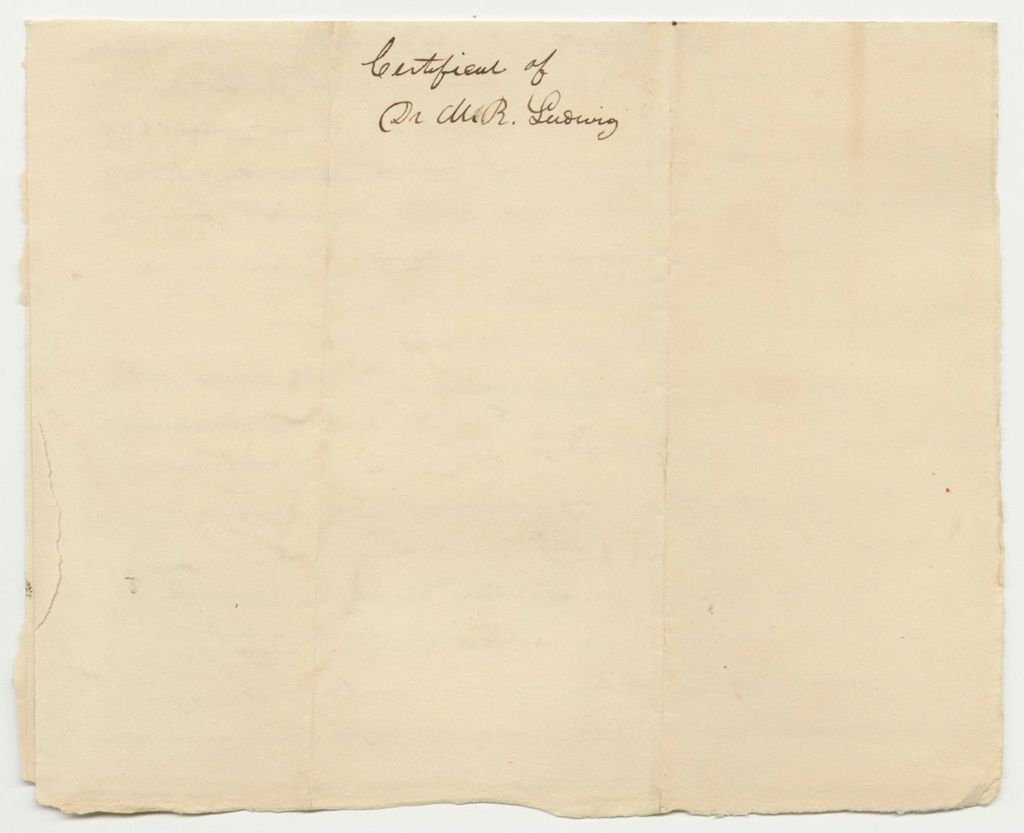 Certificat of
Dr M.R. Ludwig